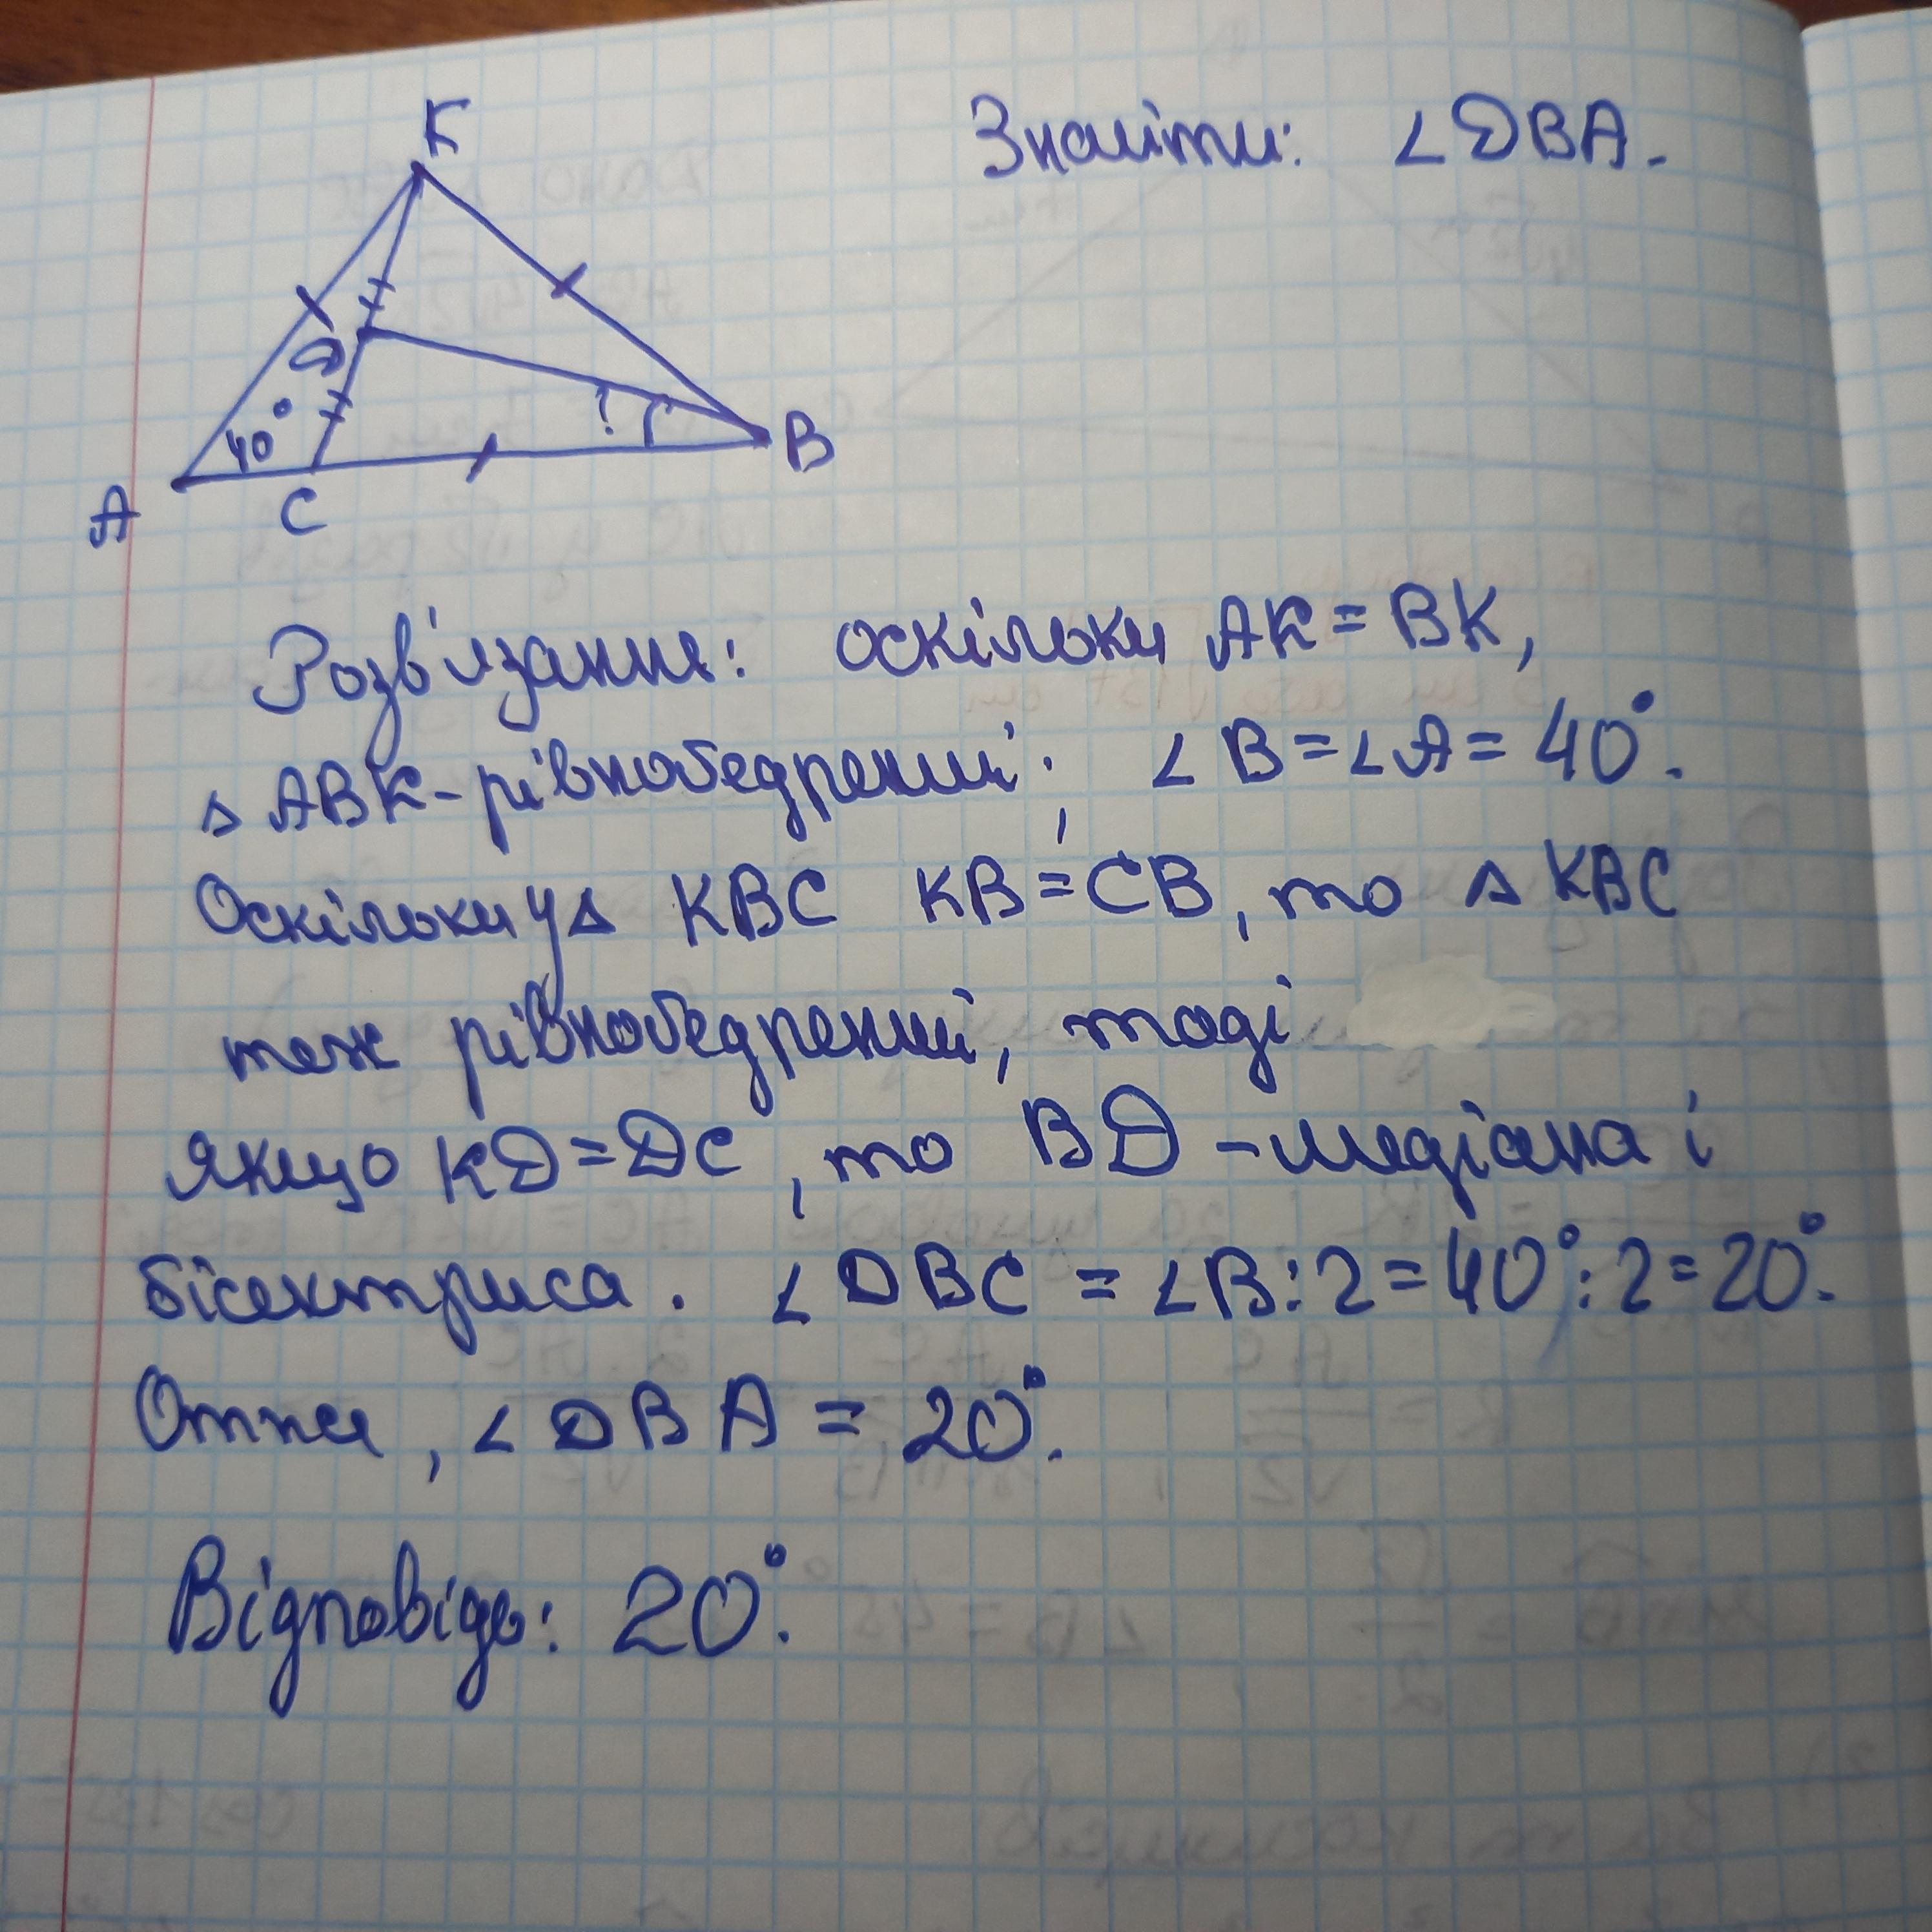 Знайти: ∠DBA.
K
D
40°
?
B
A
C
Розв'язання: оскільки AK = BK,
△ ABK - рівнобедрений; ∠B = ∠A = 40°.
Оскільки у △ KBC KB = CB, то △ KBC
теж рівнобедрений, тоді
якщо KD = DC, то BD - медіана і
бісектриса. ∠DBC = ∠B : 2 = 40° : 2 = 20°.
Отже, ∠DBA = 20°.
Відповідь: 20°.